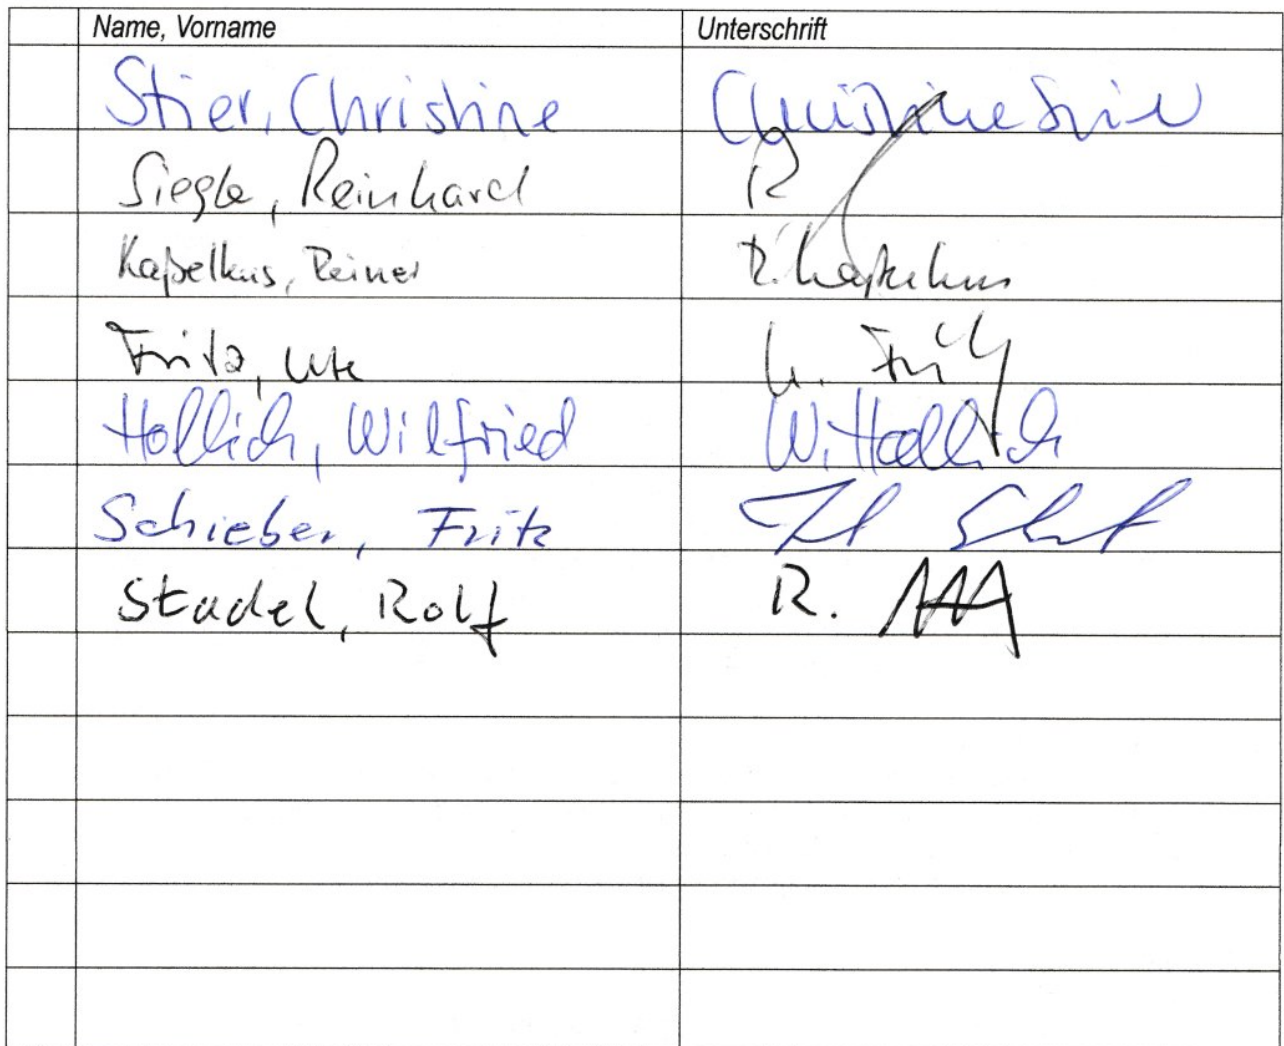 Name, Vorname Unterschrift
Stier, Christine Christine Stier
Siegle, Reinhard R
Kapelkus, Reiner R. Kapelkus
Fritz, Ute U. Fritz
Hollich, Wilfried W. Hollich
Schieber, Fritz
Stadel, Rolf R.